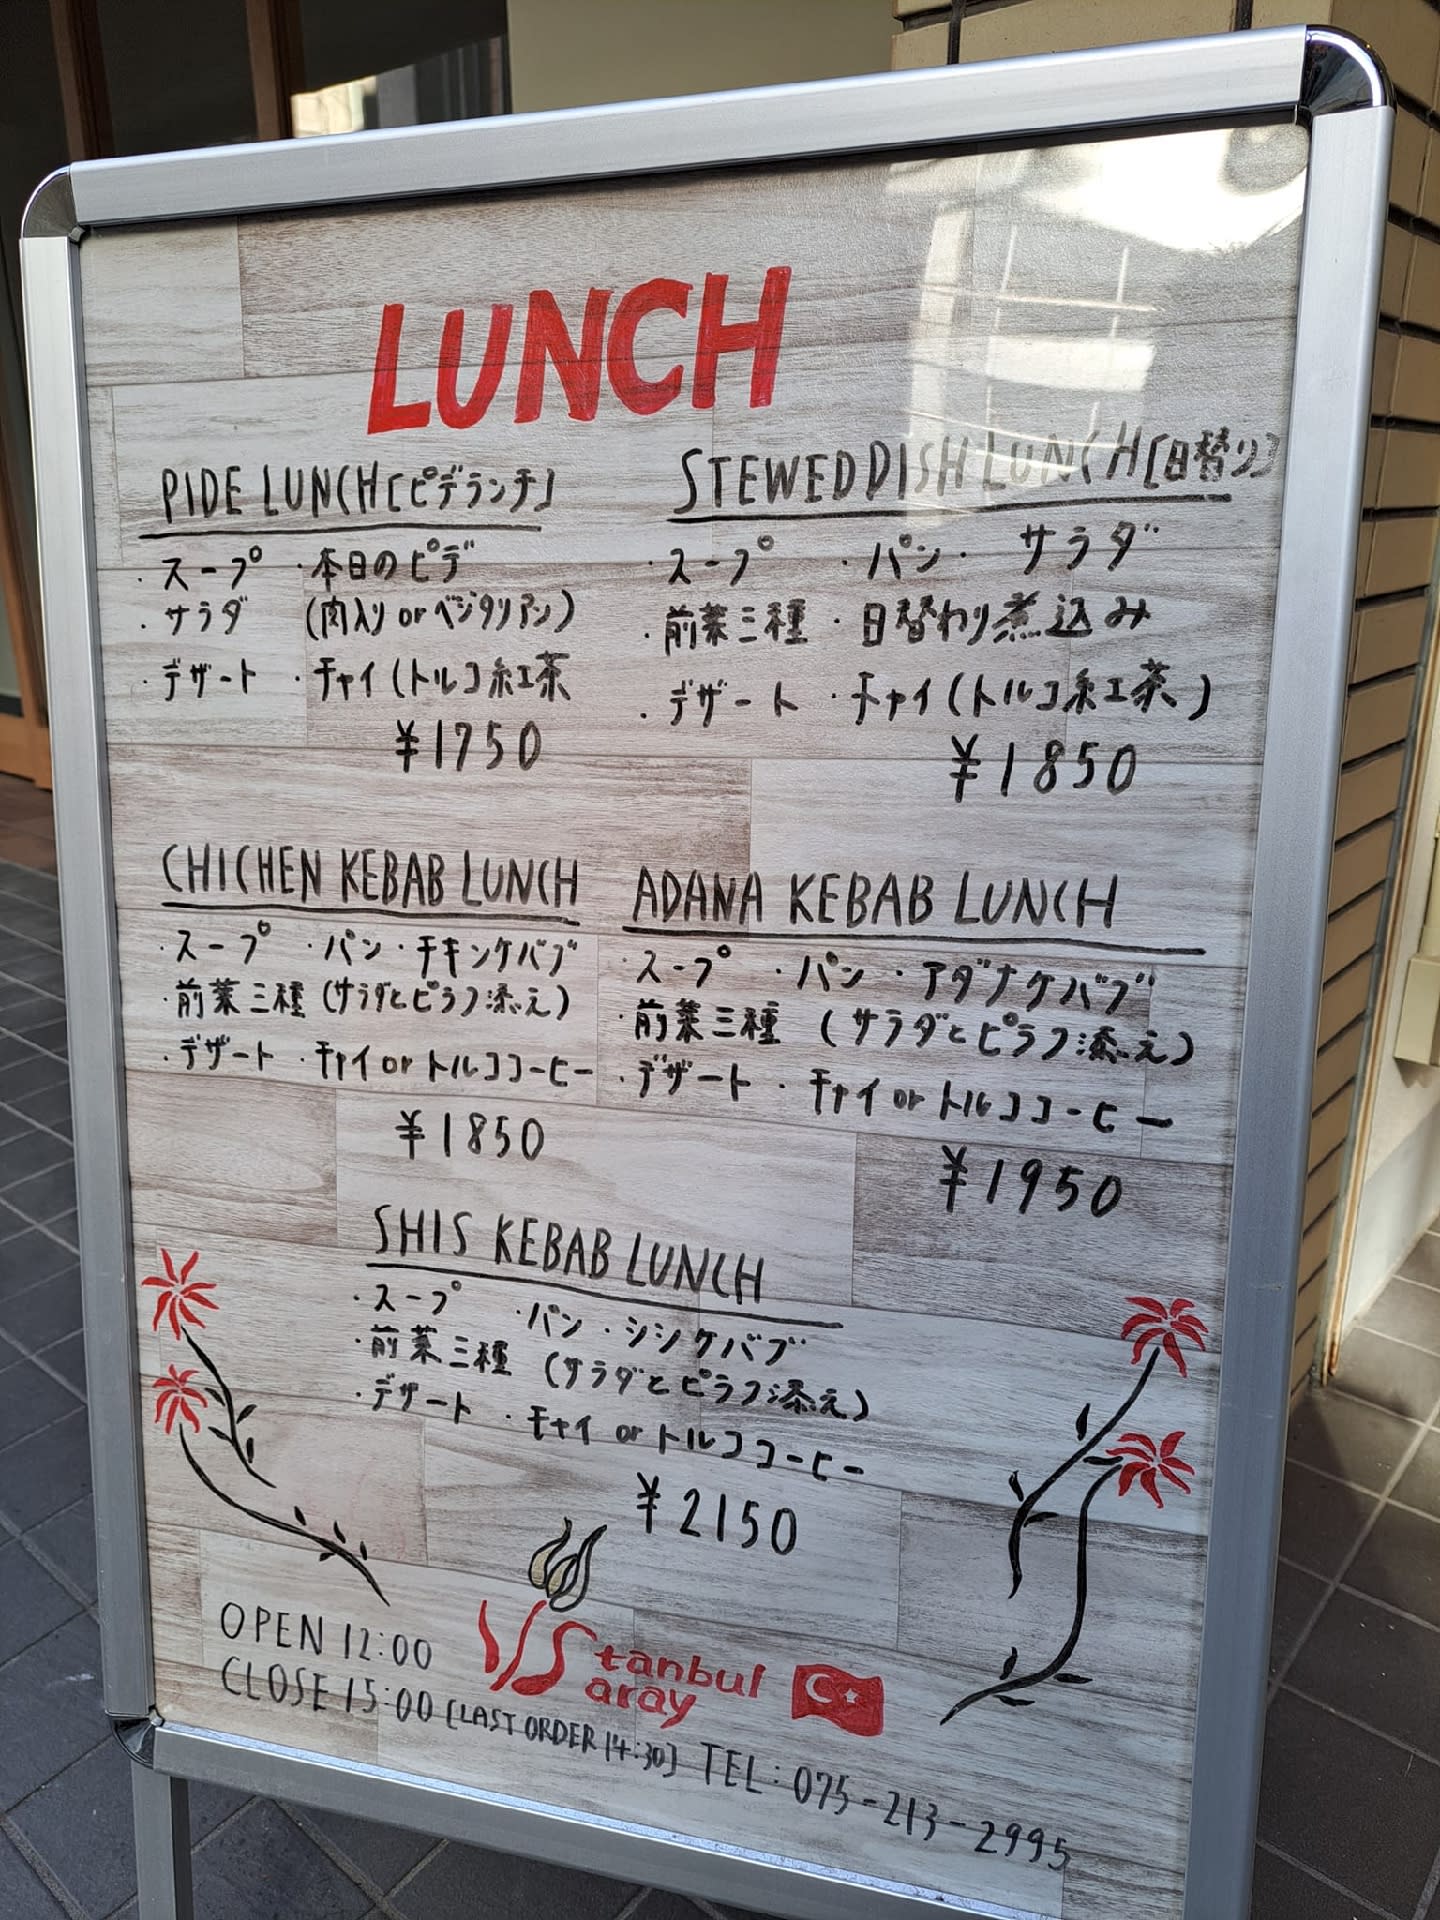 LUNCH
PIDE LUNCH[ピデランチ]
・スープ ・本日のピデ
・サラダ (肉入り or ベジタリアン)
・デザート ・チャイ(トルコ紅茶
¥1750
STEWED DISH LUNCH[日替り]
・スープ ・パン・ サラダ
・前菜三種 ・日替わり煮込み
・デザート ・チャイ(トルコ紅茶)
¥1850
CHICHEN KEBAB LUNCH
・スープ ・パン・チキンケバブ
・前菜三種 (サラダとピラフ添え)
・デザート ・チャイ or トルココーヒー
¥1850
ADANA KEBAB LUNCH
・スープ ・パン ・アダナケバブ
・前菜三種 (サラダとピラフ添え)
・デザート ・チャイ or トルココーヒー
¥1950
SHIS KEBAB LUNCH
・スープ ・パン・シシケバブ
・前菜三種 (サラダとピラフ添え)
・デザート ・チャイ or トルココーヒー
¥2150
OPEN 12:00
CLOSE 15:00 [LAST ORDER 14:30]
IStanbul
Saray
TEL:075-213-2995